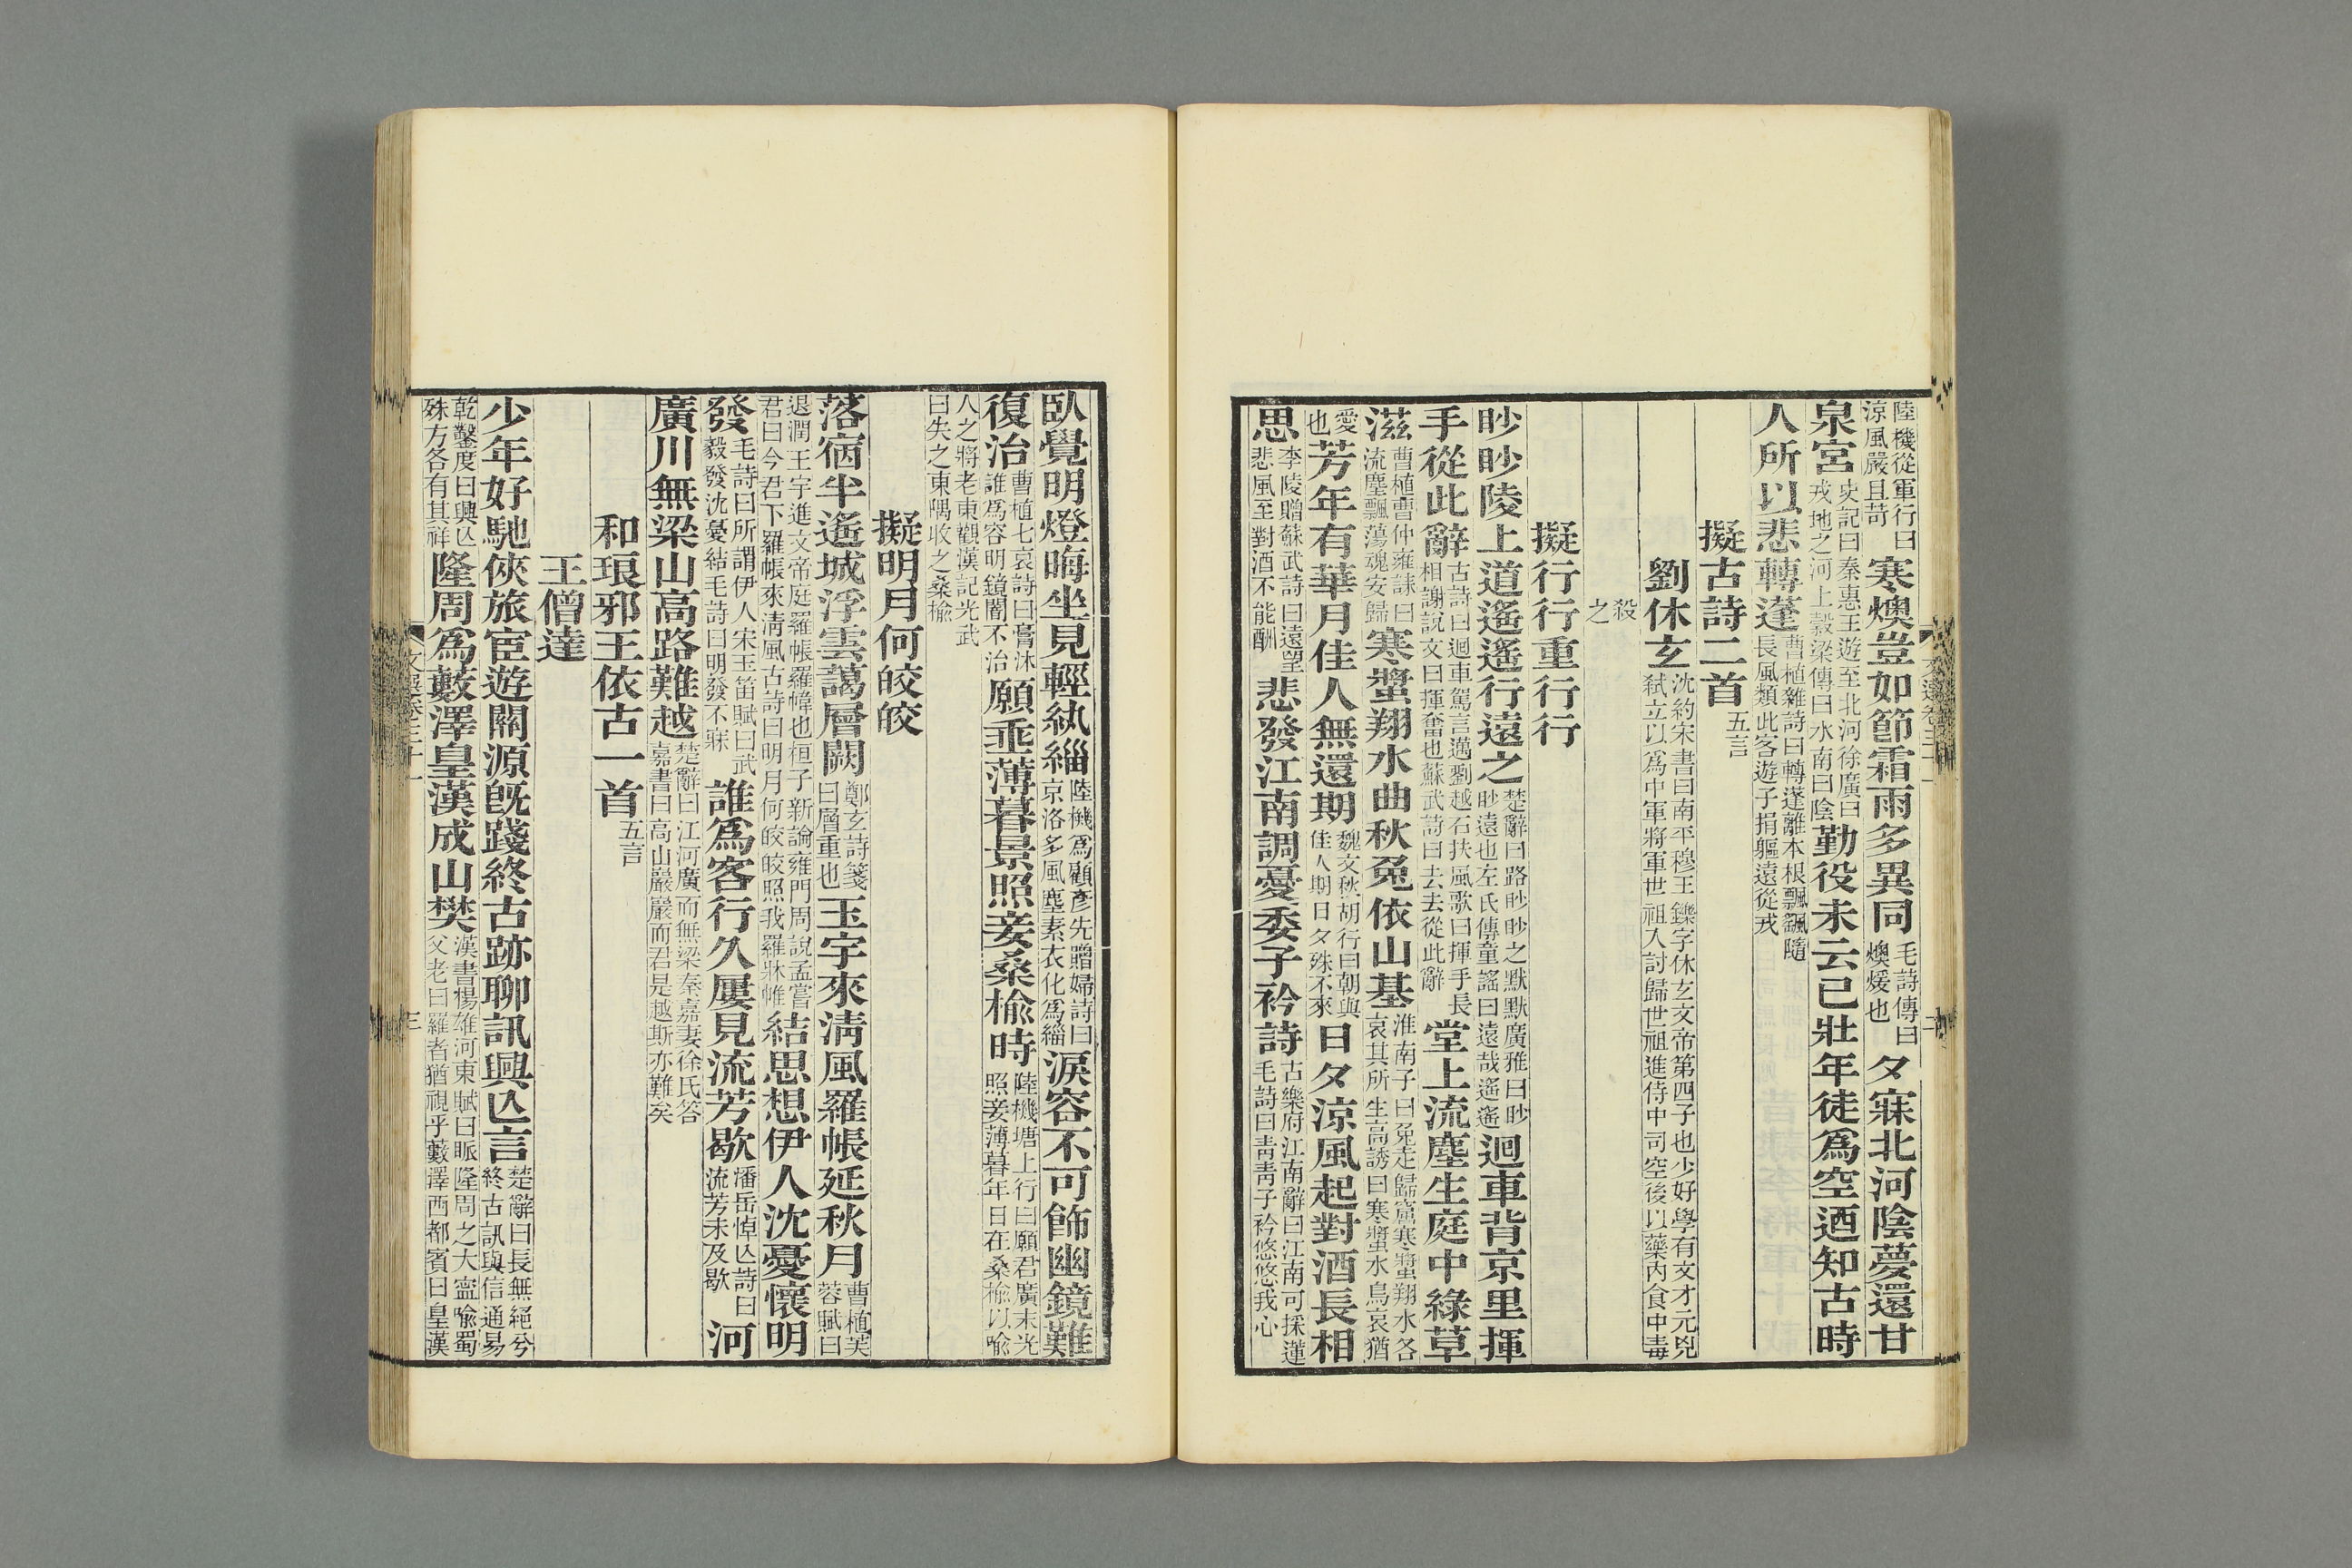 陸機從軍行曰涼風嚴且苛寒燠豈如節霜雨多異同毛詩傳曰燠煖也夕寐北河陰夢還甘
泉宮史記曰秦惠王遊至北河徐廣曰戎地之河上穀梁傳曰水南曰陰勤役未云已壯年徒爲空迺知古時
人所以悲轉蓬曹植雜詩曰轉蓬離本根飄颻隨長風類此客遊子捐軀遠從戎
擬古詩二首五言
劉休玄沈約宋書曰南平穆王鑠字休玄文帝第四子也少好學有文才元兇弑立以爲中軍將軍世祖入討歸世祖進侍中司空後以藥內食中毒
殺之
擬行行重行行
眇眇陵上道遙遙行遠之楚辭曰路眇眇之默默廣雅曰眇眇遠也左氏傳童謠曰遠哉遙遙迴車背京里揮
手從此辭古詩曰迴車駕言邁劉越石扶風歌曰揮手長相謝說文曰揮奮也蘇武詩曰去去從此辭堂上流塵生庭中綠草
滋曹植曹仲雍誄曰流塵飄蕩魂安歸寒螿翔水曲秋兔依山基淮南子曰兔走歸窟寒螿翔水各哀其所生高誘曰寒螿水鳥哀猶
愛也芳年有華月佳人無還期魏文秋胡行曰朝與佳人期日夕殊不來日夕涼風起對酒長相
思李陵贈蘇武詩曰遠望悲風至對酒不能酬悲發江南調憂委子衿詩古樂府江南辭曰江南可採蓮毛詩曰靑靑子衿悠悠我心
臥覺明燈晦坐見輕紈緇陸機爲顧彥先贈婦詩曰京洛多風塵素衣化爲緇淚容不可飾幽鏡難
復治曹植七哀詩曰膏沐誰爲容明鏡闇不治願垂薄暮景照妾桑榆時陸機塘上行曰願君廣末光照妾薄暮年日在桑榆以喩
人之將老東觀漢記光武曰失之東隅收之桑榆
擬明月何皎皎
落宿半遙城浮雲藹層闕鄭玄詩箋曰層重也玉宇來淸風羅帳延秋月曹植芙蓉賦曰
退潤王宇進文帝庭羅帳羅幃也桓子新論雍門周說孟嘗君曰今君下羅帳來淸風古詩曰明月何皎皎照我羅牀帷結思想伊人沈憂懷明
發毛詩曰所謂伊人宋玉笛賦曰武毅發沈憂結毛詩曰明發不寐誰爲客行久屢見流芳歇潘岳悼亾詩曰流芳未及歇河
廣川無梁山高路難越楚辭曰江河廣而無梁秦嘉妻徐氏答嘉書曰高山巖巖而君是越斯亦難矣
和琅邪王依古一首五言
王僧達
少年好馳俠旅宦遊關源旣踐終古跡聊訊興亾言楚辭曰長無絕兮終古訊與信通易
乾鑿度曰興亾殊方各有其祥隆周爲藪澤皇漢成山樊漢書楊雄河東賦曰眽隆周之大寧喩蜀父老曰羅者猶視乎藪澤西都賓曰皇漢